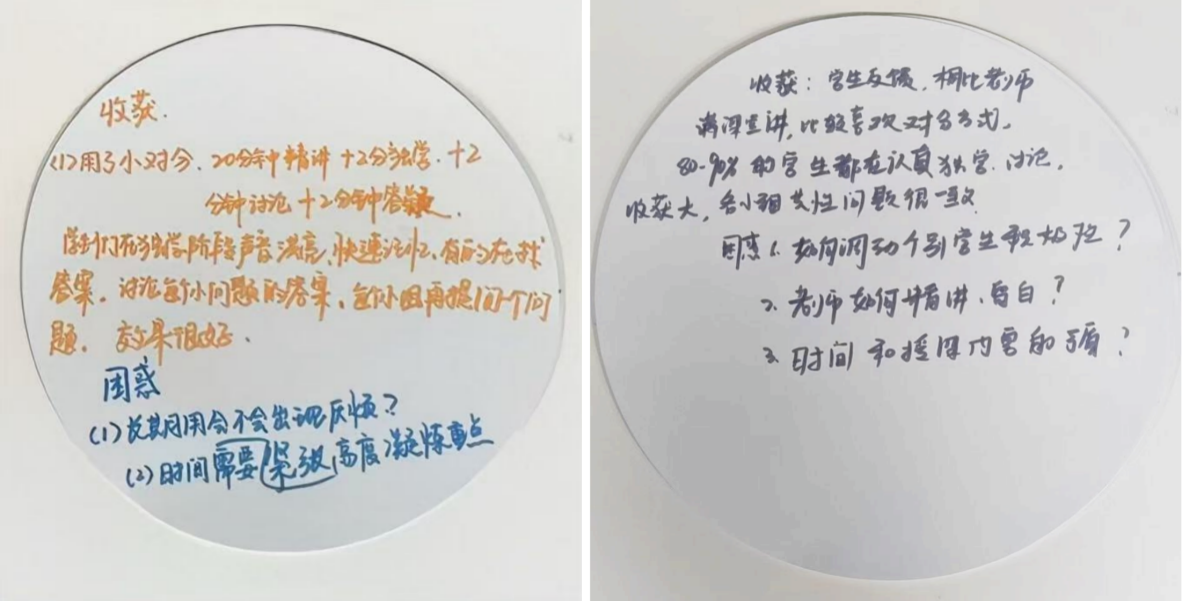 收获.
(1)用了小对分、20分钟精讲+2分独学、+2
分钟讨论+2分钟答疑.
学生们在独学阶段声音洪亮、快速记忆、有的在找
答案. 讨论每个小问题的答案、每小组再提1个问
题. 效果很好.
困惑
(1)长期用会不会出现厌烦?
(2)时间需要紧张,高度凝炼重点
收获: 学生反馈, 相比老师
满课堂讲, 比较喜欢对分方式,
80-90%的学生都在认真独学、讨论,
收获大, 各小组共性问题很一致
困惑 1. 如何调动个别学生积极性?
2. 老师如何精讲、留白?
3. 时间和授课内容的矛盾?